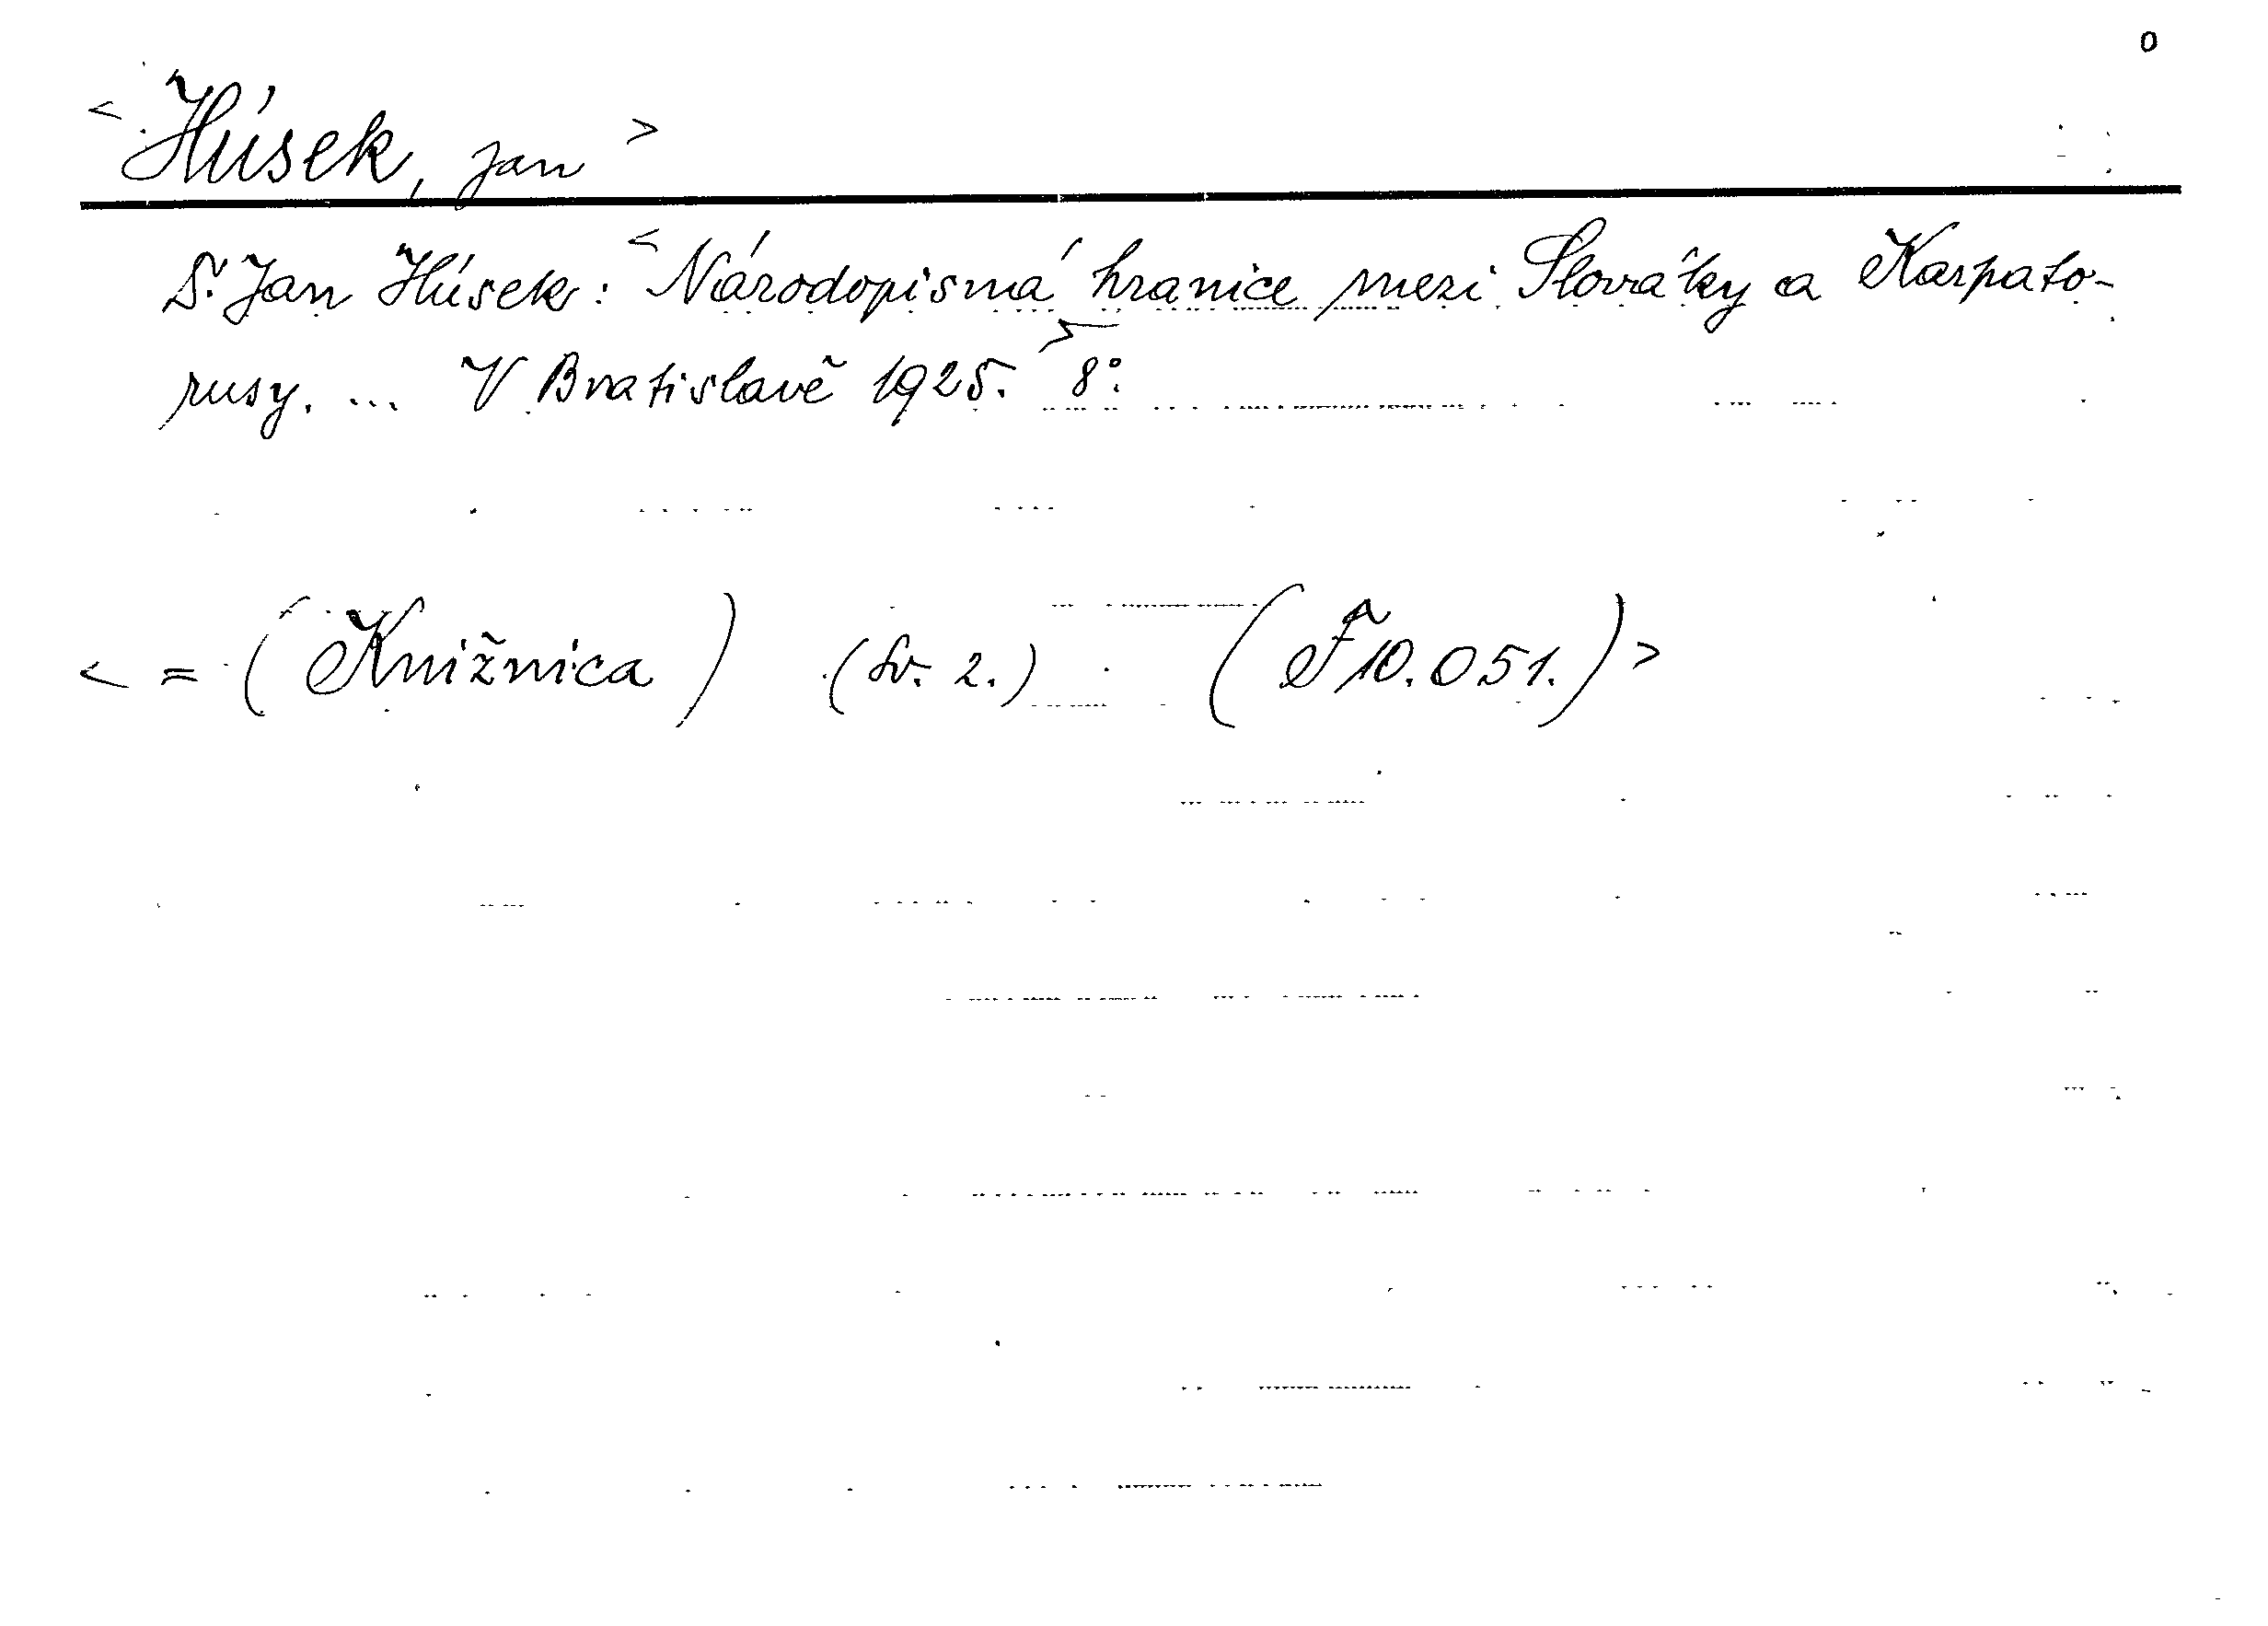 o
< Húsek, Jan >
Dr. Jan Húsek: < Národopisná hranice mezi Slováky a Karpato-
rusy. ... V Bratislavě 1925. > 8°.
< = ( Knižnica ) (Sv. 2.) ( F 10.051. ) >